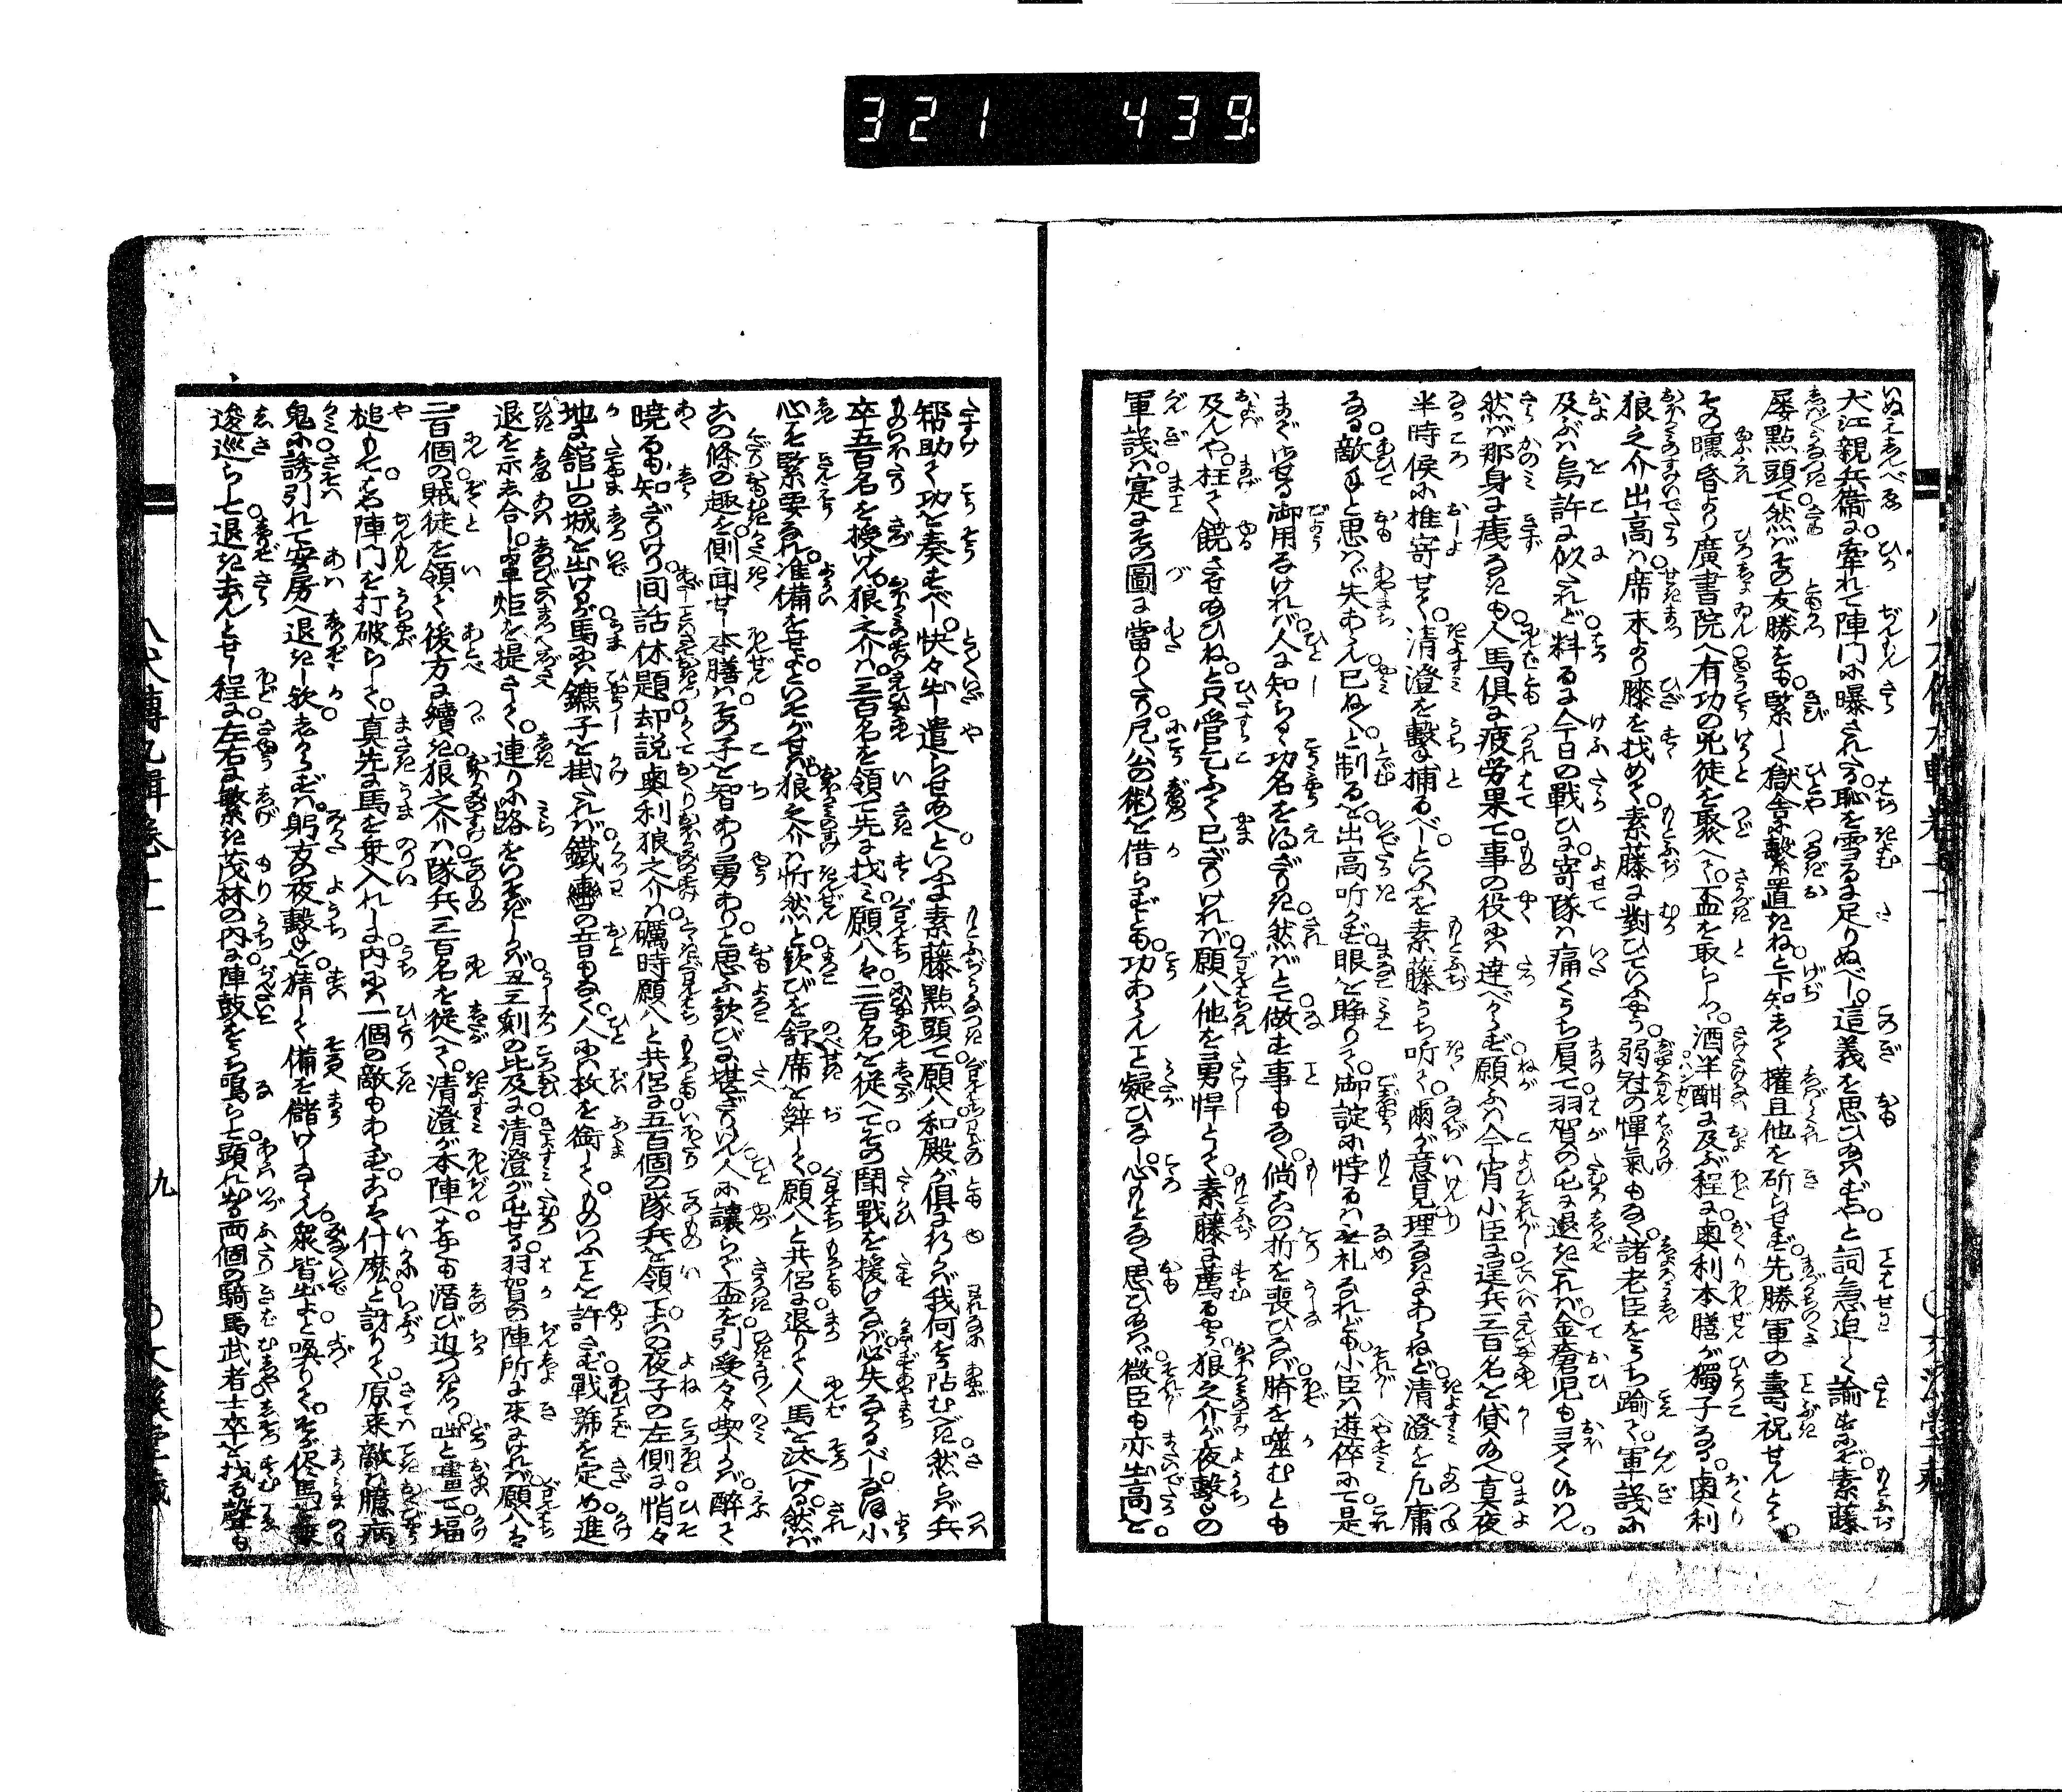 321 439
犬江親兵衞に牽れて陣門に曝されたる恥を雪るに足りぬべし。這義を思ひ給はずやと詞急迫しく諭すにぞ素藤
屡點頭て然ばその友勝をも緊しく獄舎に繋置きね。と下知して權且他を斫らせず先勝軍の壽祝せんとて。
その曛昏より廣書院へ有功の兇徒を聚へて。盃を取らしつ。酒半酣に及ぶ程に奧利本膳が獨子なる。奧利
狼之介出高は席末より膝を找めて。素藤に對ひていふやう。弱冠の憚氣もなく。諸老臣をうち踰て。軍議に
及ぶは烏許に似たれど。料るに今日の戰ひに。寄隊は痛くうち屓て羽賀の屯に退きたれば金瘡児も多くはべらん。
然ば那身に痍なきも人馬倶に疲労果て。事の役には達べからず。願ふは今宵小臣に逞兵三百名を貸給へ。真夜
半時候に推寄せて。清澄を撃も捕るべし。といふを素藤うち听て。爾が意見理なきにあらねど。清澄を凡庸
なる。敵手と思はゞ失あらん。已ねかしと制るを出高听かず眼を睁りて。御諚に悖るは無礼なれども。小臣は遊倅にて是
まで させる御用なければ。人に知らるゝ功名を得ざりき。然ばとて做す事もなく。倘この折を喪ひなば臍を噬むとも
及んや。枉て饒させ給ひね。と只管乞ふて已ざりければ願八他を勇悍として。素藤に薦るやう。狼之介が夜撃の
軍議は。寔にその圖に當りてより。尼公の術を借らずとも。功あらんこと疑ひなし。心もとなく思ひ給はゞ。微臣も亦出高を
帮助て功を奏すべし。快々出し遣らせ給へ。といふに素藤點頭て。願八和殿が倶にゆかば我何をか阽むべき。然らば兵
卒五百名を授けん。狼之介は三百名を領て先に找み。願八は二百名を從へて。その鬪戰を援けなば。必失なかるべし。なほ小
心を緊要なれ。准備をせよ。といそがせば。狼之介は忻然と歓びを舒席を辞して。願八と共侶に退りて人馬を汰へける。然ば
この條の趣を側聞せし本膳はその子を智あり勇ありと思ふ歓びに堪ざりけん。人に讓らで盃を引受々々喫しかば醉て
曉るも知ざりけり。間話休題却説奧利狼之介は礪時願八と共侶に五百個の隊兵を領てこの夜子の左側に悄々
地に舘山の城を出けるが。馬には鑣子を掛たれば。鐵轡の音もなく。人には枚を銜して。ものいふことを許さず。戰號を定め。進
退を示し合し。軍炬を提さして。連りに路をいそぎしかば。丑三刻の比及に清澄が屯せる羽賀の陣所に来にければ。願八は
二百個の賊徒を領て後方に續き。狼之介は隊兵三百名を從へて。清澄が本陣へ。はや潜び近づきつ。咄と噇て。堛
槌もてはや陣門を打破らして。真先に馬を乗入れしに。内には一個の敵もあらず。こは什麼と訝りて。原来敵は臆病
鬼に誘引れて安房へ退きし歟。しからずは。躬方の夜撃を猜して。備を儲けしならん。衆皆出よと喚りて。そが侭馬を乗
逡巡らして退き去んとせし程に。左右に繁き茂林の内に陣鼓をうち鳴らして顕れ出る両個の騎馬武者。士卒を找る聲も
八犬傳九輯巻十一
九
○文溪堂藏